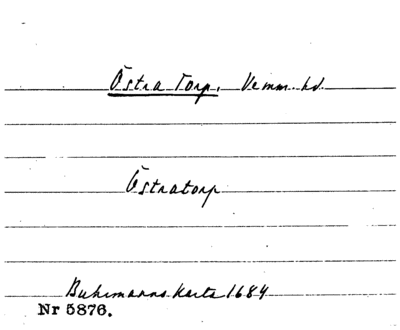 Östra Torp, Vemm. hd.
Östratorp
Buhrmanns karta 1684
Nr 5876.